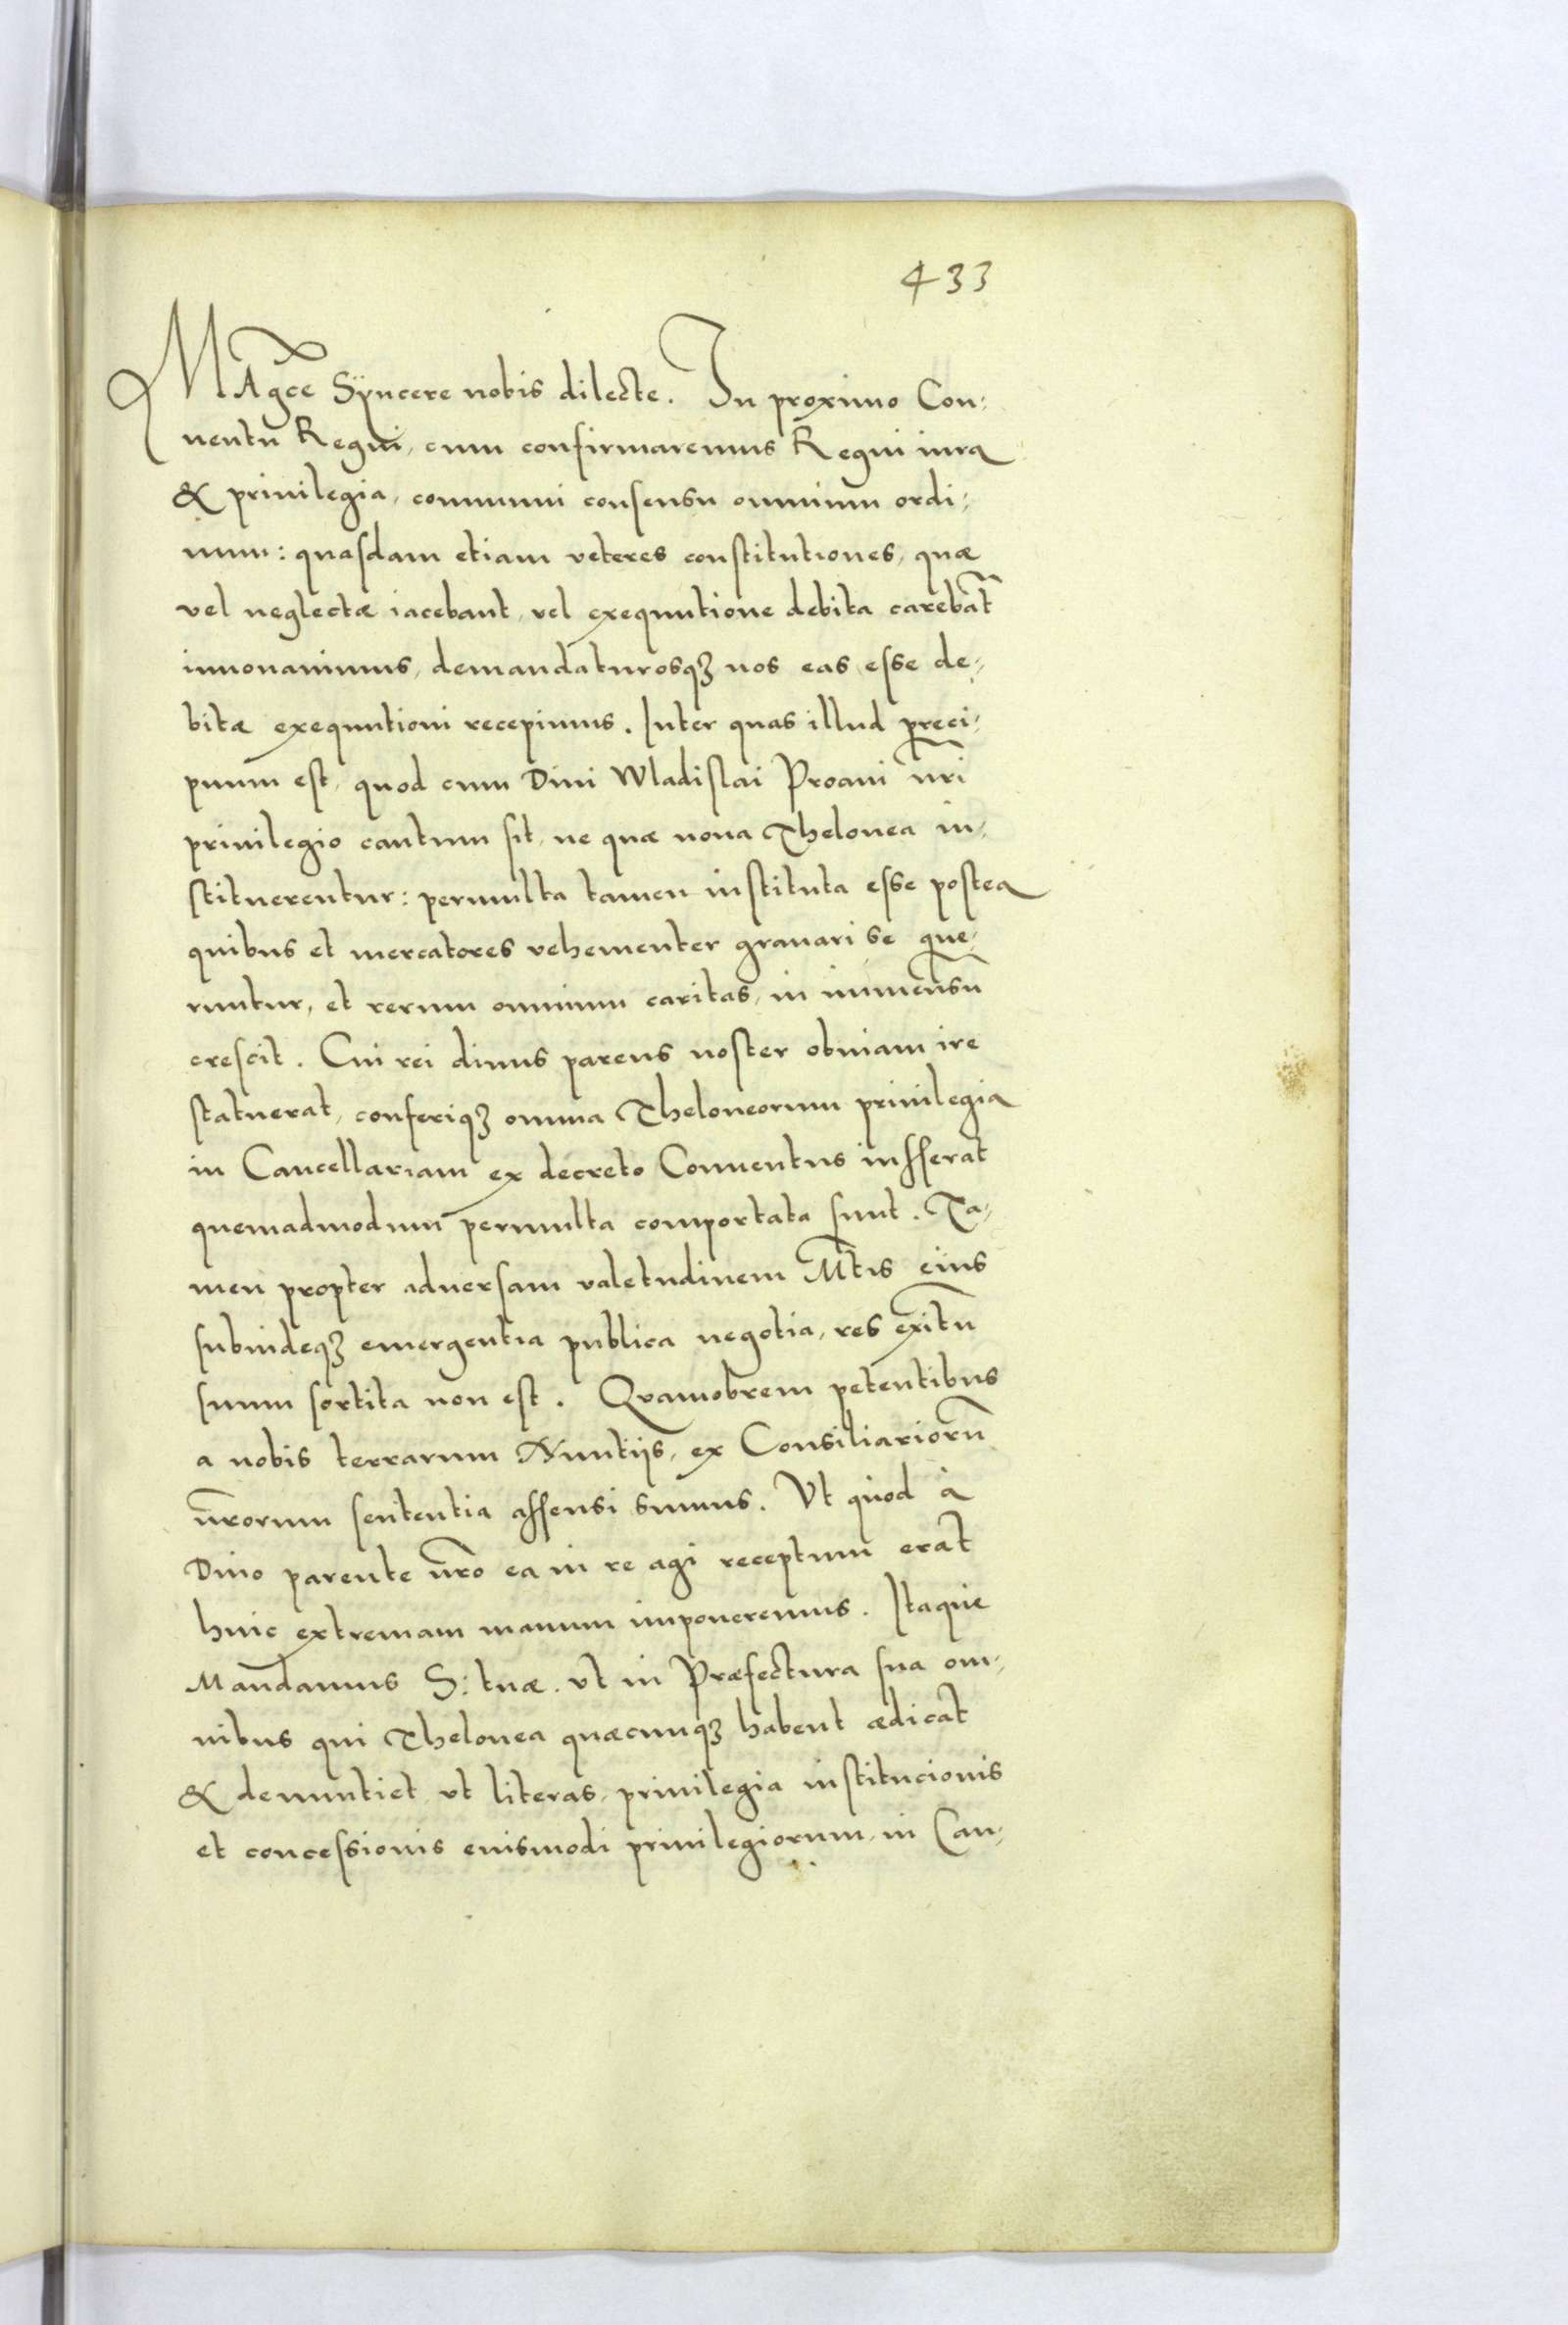 433
MAgce Sÿncere nobis dilecte. In proximo Con:
uentu Regni, cum confirmaremus Regni iura
& priuilegia, communi consensu omnium ordi:
num: quasdam etiam veteres constitutiones, quæ
vel neglectæ iacebant, vel exequutione debita carebāt
innouauimus, demandaturosqȝ nos eas esse de:
bitæ exequutioni recepimus. Inter quas illud preci:
puum est, quod cum Diui Wladislai Proaui nr̄i
priuilegio cautum sit, ne quæ noua Thelonea in:
stituerentur: permulta tamen instituta esse postea
quibus et mercatores vehementer grauari se que:
runtur, et rerum omnium caritas, in immensū
crescit. Cui rei diuus parens noster obuiam ire
statuerat, conferiqȝ omnia Theloneorum priuilegia
in Cancellariam ex decreto Conuentus iusserat
quemadmodum permulta comportata sunt. Ta:
men propter aduersam valetudinem Mt̄is eius
subindeqȝ emergentia publica negotia, res exitū
suum sortita non est. Quamobrem petentibus
a nobis terrarum Nuntijs, ex Consiliariorū
nr̄orum sententia assensi sumus. Vt quod à
Diuo parente nr̄o ea in re agi receptum erat
huic extremam manum imponeremus. Itaque
Mandamus S: tuæ. vt in Præfectura sua om:
nibus qui Thelonea quæcunqȝ habent ædicat
& denuntiet vt literas, priuilegia institucionis
et concessionis euismodi priuilegiorum, in Can: